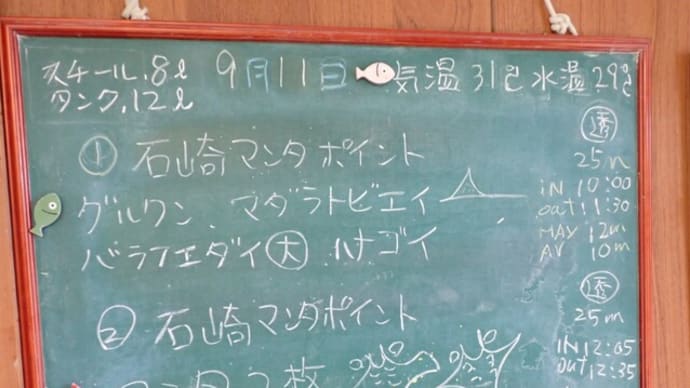 スチール.8ℓ 9月11日 気温31℃ 水温29℃
タンク.12ℓ
① 石崎マンタポイント
グルクン マダラトビエイ
バラフエダイ 大 ハナゴイ
透
25m
IN 10:00
out 11:30
MAX 12m
AV 10m
② 石崎マンタポイント
マンタ2枚
透
25m
IN 12:05
out 12:35